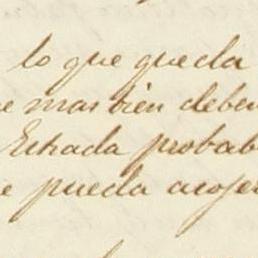 lo que queda
e mas bien deben
Estrada probab
e pueda acoger